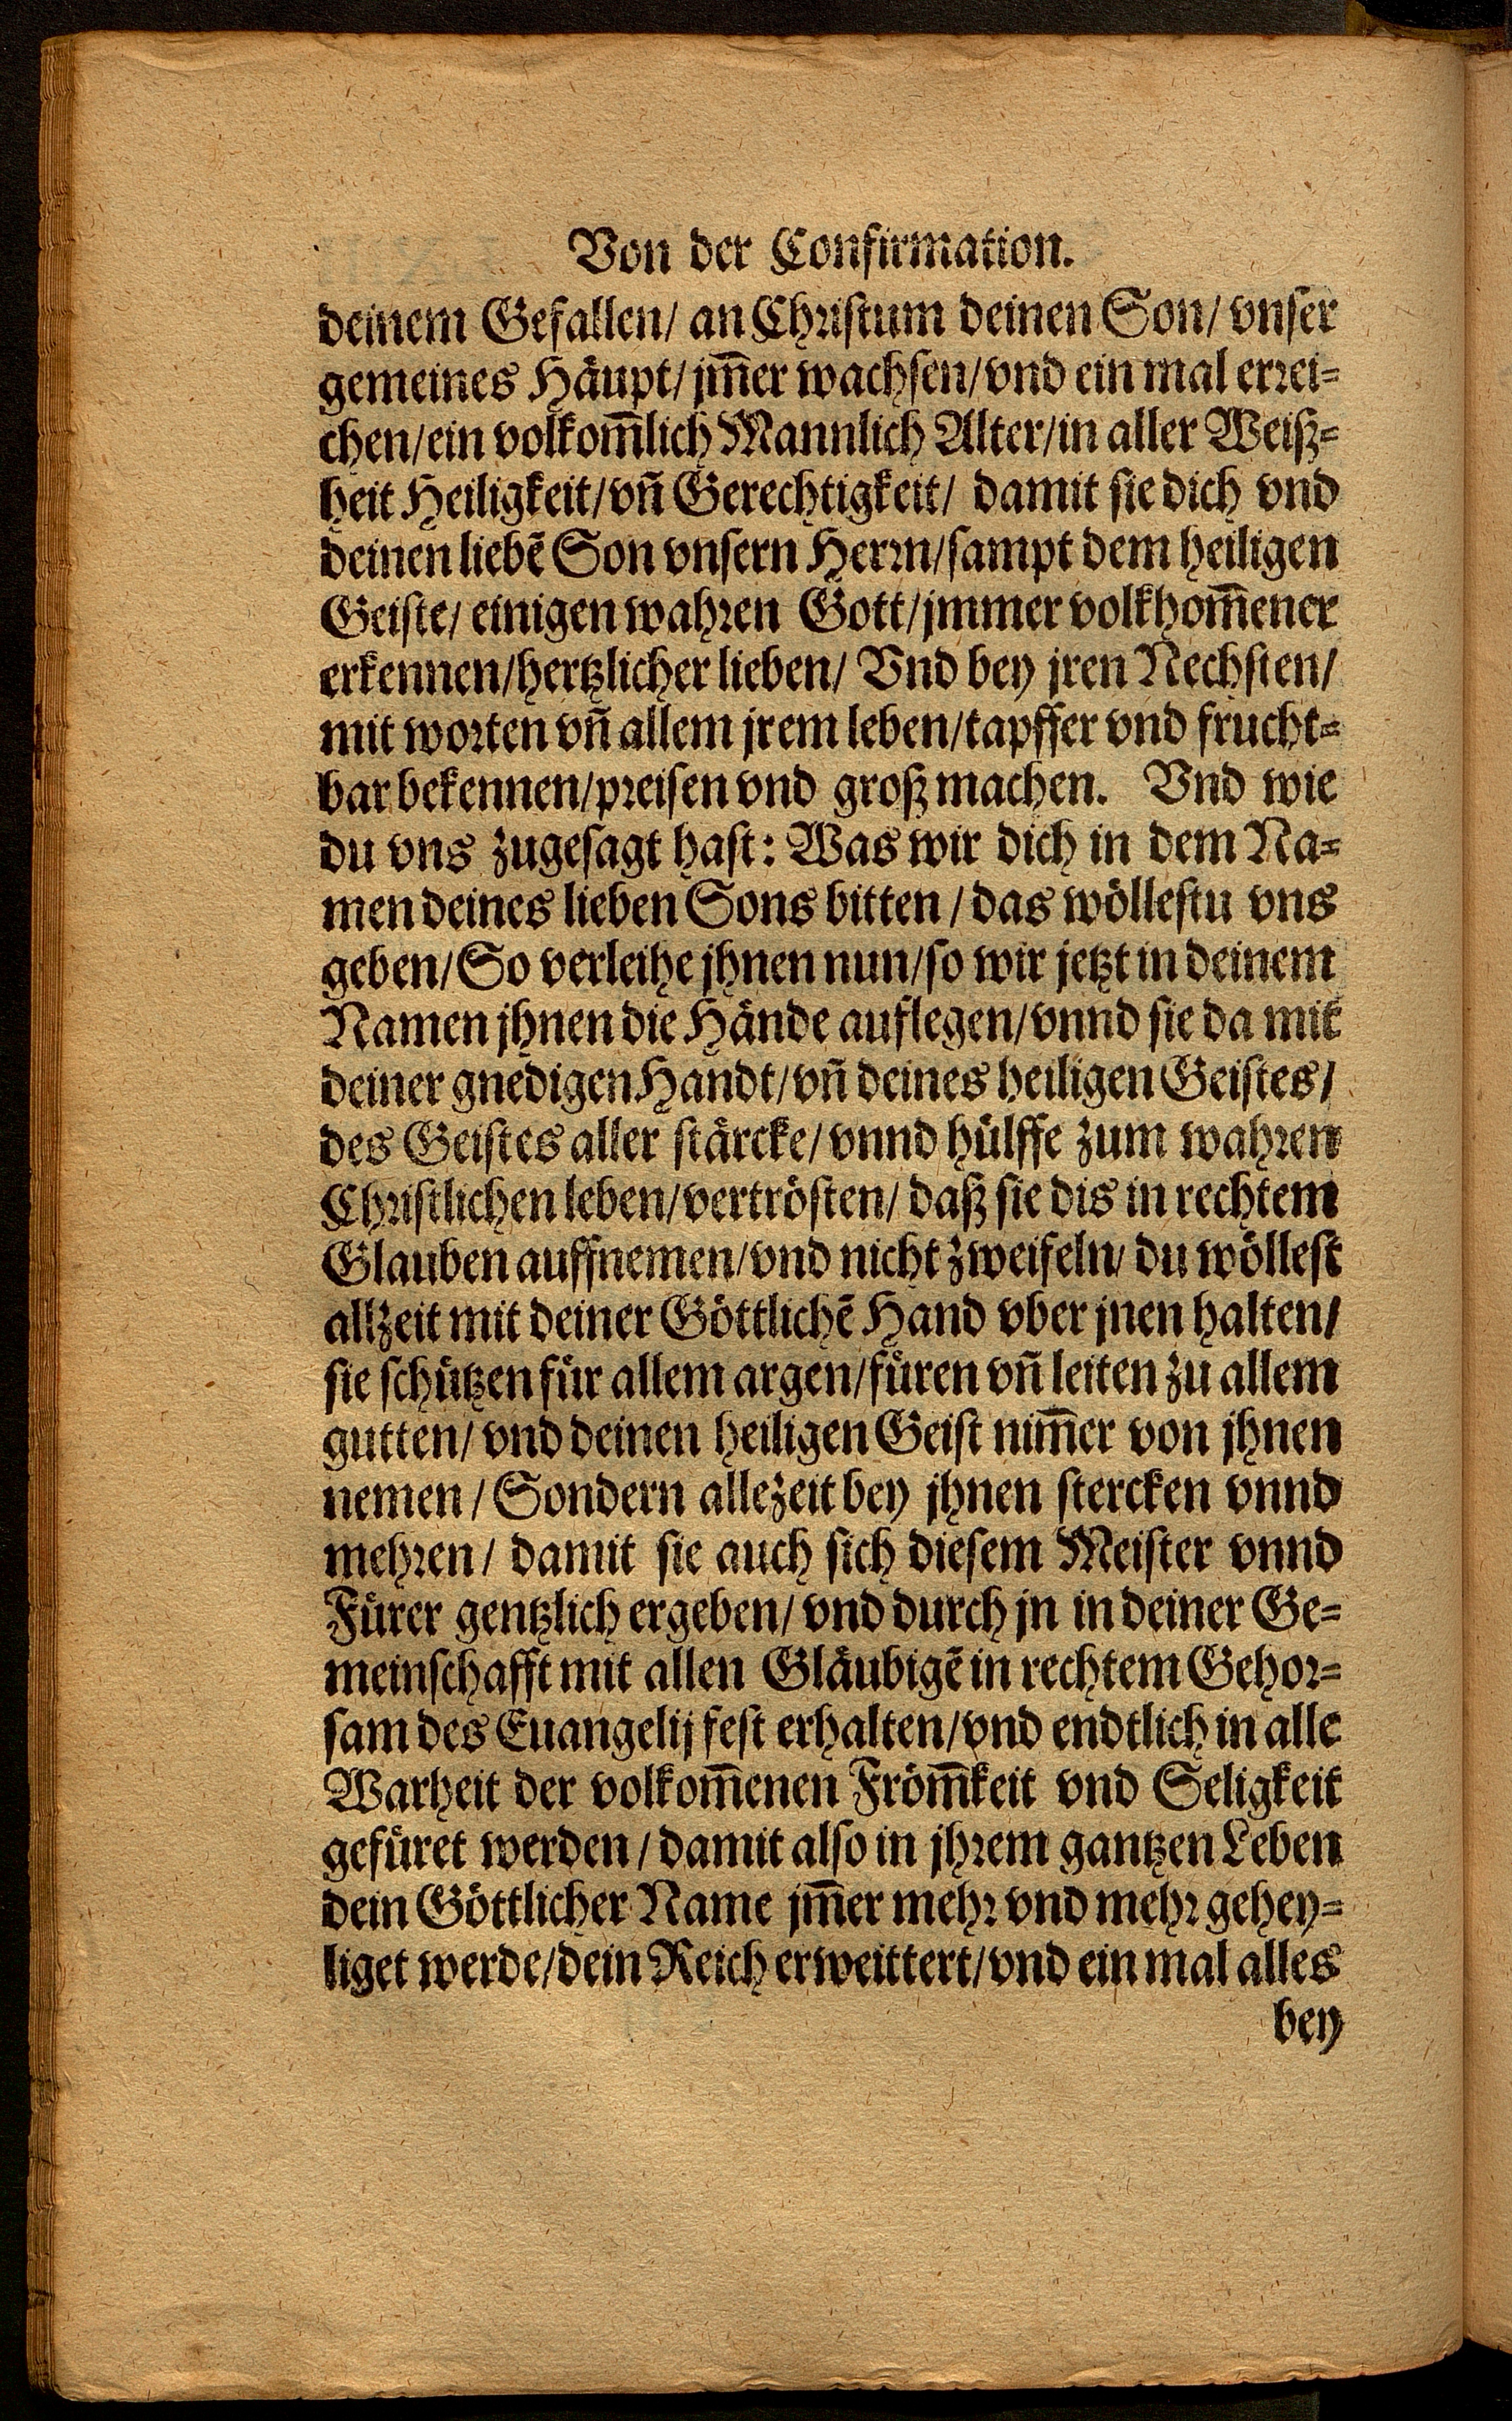 Von der Confirmation.
deinem Gefallen/ an Christum deinen Son/ vnser
gemeines Häupt/ jm̄er wachsen/ vnd ein mal errei-
chen/ ein volkom̄lich Mannlich Alter/ in aller Weiß-
heit Heiligkeit/ vn̄ Gerechtigkeit/ damit sie dich vnd
deinen liebē Son vnsern Herrn/ sampt dem heiligen
Geiste/ einigen wahren Gott/ jmmer volkhom̄ener
erkennen/ hertzlicher lieben/ Vnd bey jren Nechsten/
mit worten vn̄ allem jrem leben/ tapffer vnd frucht-
bar bekennen/ preisen vnd groß machen. Vnd wie
du vns zugesagt hast: Was wir dich in dem Na-
men deines lieben Sons bitten / das wöllestu vns
geben/ So verleihe jhnen nun/ so wir jetzt in deinem
Namen jhnen die Hände auflegen/ vnnd sie da mit
deiner gnedigen Handt/ vn̄ deines heiligen Geistes/
des Geistes aller stärcke/ vnnd hülffe zum wahren
Christlichen leben/ vertrösten/ daß sie dis in rechtem
Glauben auffnemen/ vnd nicht zweifeln/ du wöllest
allzeit mit deiner Göttlichē Hand vber jnen halten/
sie schützen für allem argen/ füren vn̄ leiten zu allem
gutten/ vnd deinen heiligen Geist nim̄er von jhnen
nemen / Sondern allezeit bey jhnen stercken vnnd
mehren/ damit sie auch sich diesem Meister vnnd
Fürer gentzlich ergeben/ vnd durch jn in deiner Ge-
meinschafft mit allen Gläubigē in rechtem Gehor-
sam des Euangelij fest erhalten/ vnd endtlich in alle
Warheit der volkom̄enen Fröm̄keit vnd Seligkeit
gefüret werden / damit also in jhrem gantzen Leben
dein Göttlicher Name jm̄er mehr vnd mehr gehey-
liget werde/ dein Reich erweittert/ vnd ein mal alles
bey